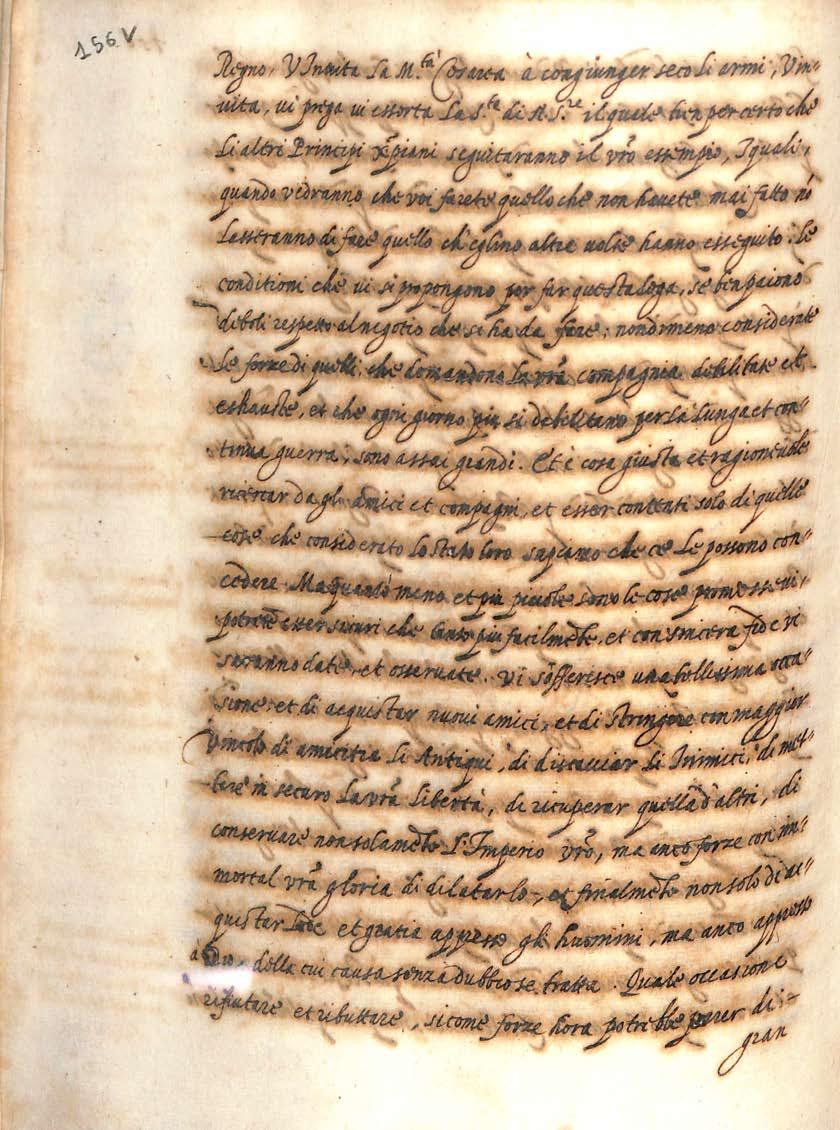 156V
Regno, V'Invita La M.tà Cesarea à congiunger seco li armi, V'in=
uita, ui prega ui essorta La S.tà di N. S.re il quale tien per certo che
Li altri Principi x̄piani seguitaranno il vr̃o essempio, I quali,
quando vedranno che voi farete quello che non hauete mai fatto nõ
Lasseranno di fare quello ch'eglino altre uolte hanno esseguito. Le
conditioni che ui si propongono per far questa Lega, se ben paiono
deboli rispetto al negotio che si ha da fare; nondimeno considerate
Le forze di quelli, che domandono La vr̃a compagnia debilitate et
exhauste, et che ogni giorno piu si debilitano per La Lunga et con=
tinua guerra, sono assai grandi. Et è cosa giusta et ragioneuole
ricercar da gli amici et compagni, et esser contenti solo di quelle
cose che considerato Lo stato loro sapiamo che ce Le possono con=
cedere. Ma quando meno et piu picciole sono le cose promesseui,
potrete esser sicuri che tanto piu facilmẽte, et con sincera fide vi
saranno date, et osseruate. Vi s'offerisce una bellissima occa=
sione, et di acquistar nuoui amici, et di stringere con maggior
Vincolo di amicitia Li Antiqui, di discacciar Li Inimici, di met=
tere in securo La vr̃a Libertà, di ricuperar quella d'altri, di
conseruare non solamẽte L'Imperio vr̃o, ma anco forze con im=
mortal vr̃a gloria di dilatarlo, et finalmẽte non solo di ac=
quistar Lode et gratia appresso gli huomini, ma anco appresso
a Dio, della cui causa senza dubbio se tratta. Quale occasione
rifiutare et ributtare, sicome forze hora potrebbe parer di=
gran